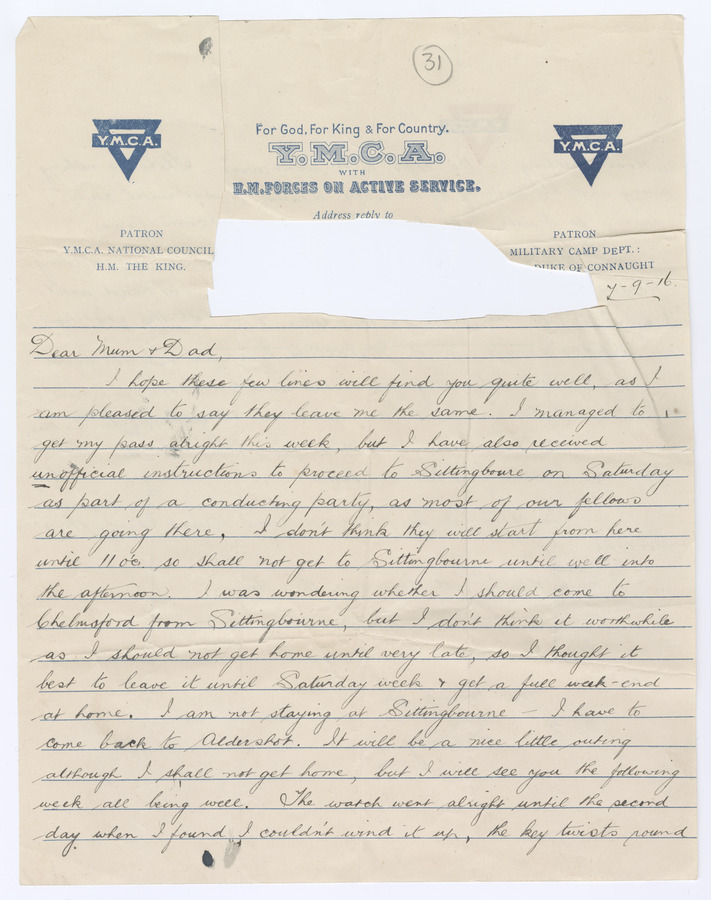 31
For God, For King & For Country.
Y.M.C.A. Y.M.C.A. Y.M.C.A.
WITH
H.M. FORCES ON ACTIVE SERVICE.
Address reply to
PATRON PATRON
Y.M.C.A. NATIONAL COUNCIL MILITARY CAMP DEPT. :
H.M. THE KING. DUKE OF CONNAUGHT
7-9-16.
Dear Mum & Dad,
I hope these few lines will find you quite well, as I
am pleased to say they leave me the same. I managed to
get my pass alright this week, but I have also received
unofficial instructions to proceed to Sittingboure on Saturday
as part of a conducting party, as most of our fellows
are going there, I don't think they will start from here
until 11 o'c. so shall not get to Sittingbourne until well into
the afternoon. I was wondering whether I should come to
Chelmsford from Sittingbourne, but I don't think it worthwhile
as I should not get home until very late, so I thought it
best to leave it until Saturday week & get a full week-end
at home. I am not staying at Sittingbourne - I have to
come back to Aldershot. It will be a nice little outing
although I shall not get home, but I will see you the following
week all being well. The watch went alright until the second
day when I found I couldn't wind it up, the key twists round